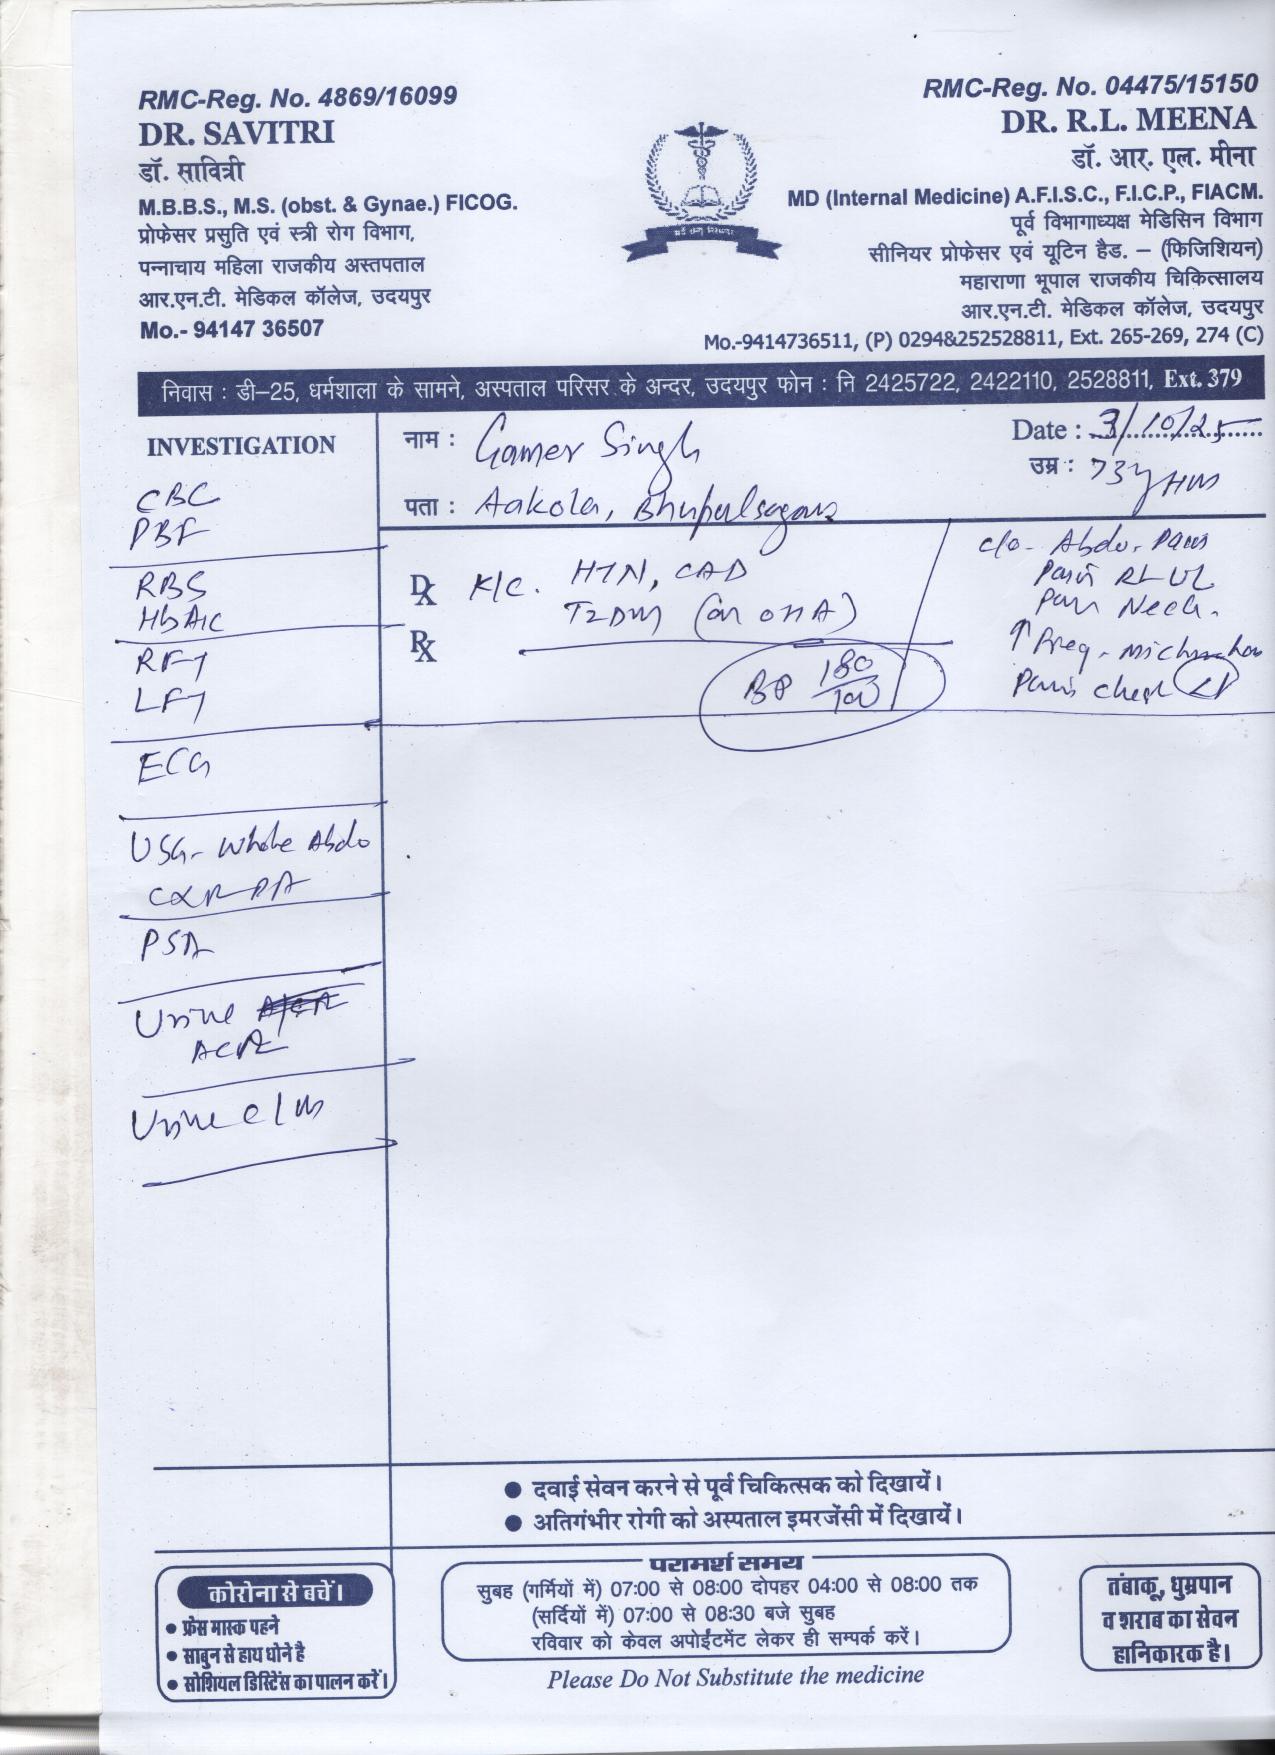 RMC-Reg. No. 4869/16099
DR. SAVITRI
डॉ. सावित्री
M.B.B.S., M.S. (obst. & Gynae.) FICOG.
प्रोफेसर प्रसुति एवं स्त्री रोग विभाग,
पन्नाचाय महिला राजकीय अस्तपताल
आर.एन.टी. मेडिकल कॉलेज, उदयपुर
Mo.- 94147 36507
RMC-Reg. No. 04475/15150
DR. R.L. MEENA
डॉ. आर. एल. मीना
MD (Internal Medicine) A.F.I.S.C., F.I.C.P., FIACM.
पूर्व विभागाध्यक्ष मेडिसिन विभाग
सीनियर प्रोफेसर एवं यूटिन हैड. – (फिजिशियन)
महाराणा भूपाल राजकीय चिकित्सालय
आर.एन.टी. मेडिकल कॉलेज, उदयपुर
Mo.-9414736511, (P) 0294&252528811, Ext. 265-269, 274 (C)
निवास : डी–25, धर्मशाला के सामने, अस्पताल परिसर के अन्दर, उदयपुर फोन : नि 2425722, 2422110, 2528811, Ext. 379
नाम : Gamer Singh
Date : 3/10/25
उम्र : 73y
पता : Aakola, Bhupalsagar
INVESTIGATION
CBC
PBF
RBS
HbA1c
RFT
LFT
ECG
USG- Whole Abdo
CXR-PA
PSA
Urine
ACR
Urine c/m
Dx K/C. HTN, CAD
T2DM (on OHA)
Rx
BP 180/100
c/o- Abdo. Pain
Pain
Pain Neck.
↑ Freq-
Pain chest
● दवाई सेवन करने से पूर्व चिकित्सक को दिखायें।
● अतिगंभीर रोगी को अस्पताल इमरजेंसी में दिखायें।
कोरोना से बचें।
● फ्रेस मास्क पहने
● साबुन से हाथ धोने है
● सोशियल डिस्टिेंस का पालन करें।
परामर्श समय
सुबह (गर्मियों में) 07:00 से 08:00 दोपहर 04:00 से 08:00 तक
(सर्दियों में) 07:00 से 08:30 बजे सुबह
रविवार को केवल अपोईंटमेंट लेकर ही सम्पर्क करें।
Please Do Not Substitute the medicine
तंबाकू, धुम्रपान
व शराब का सेवन
हानिकारक है।